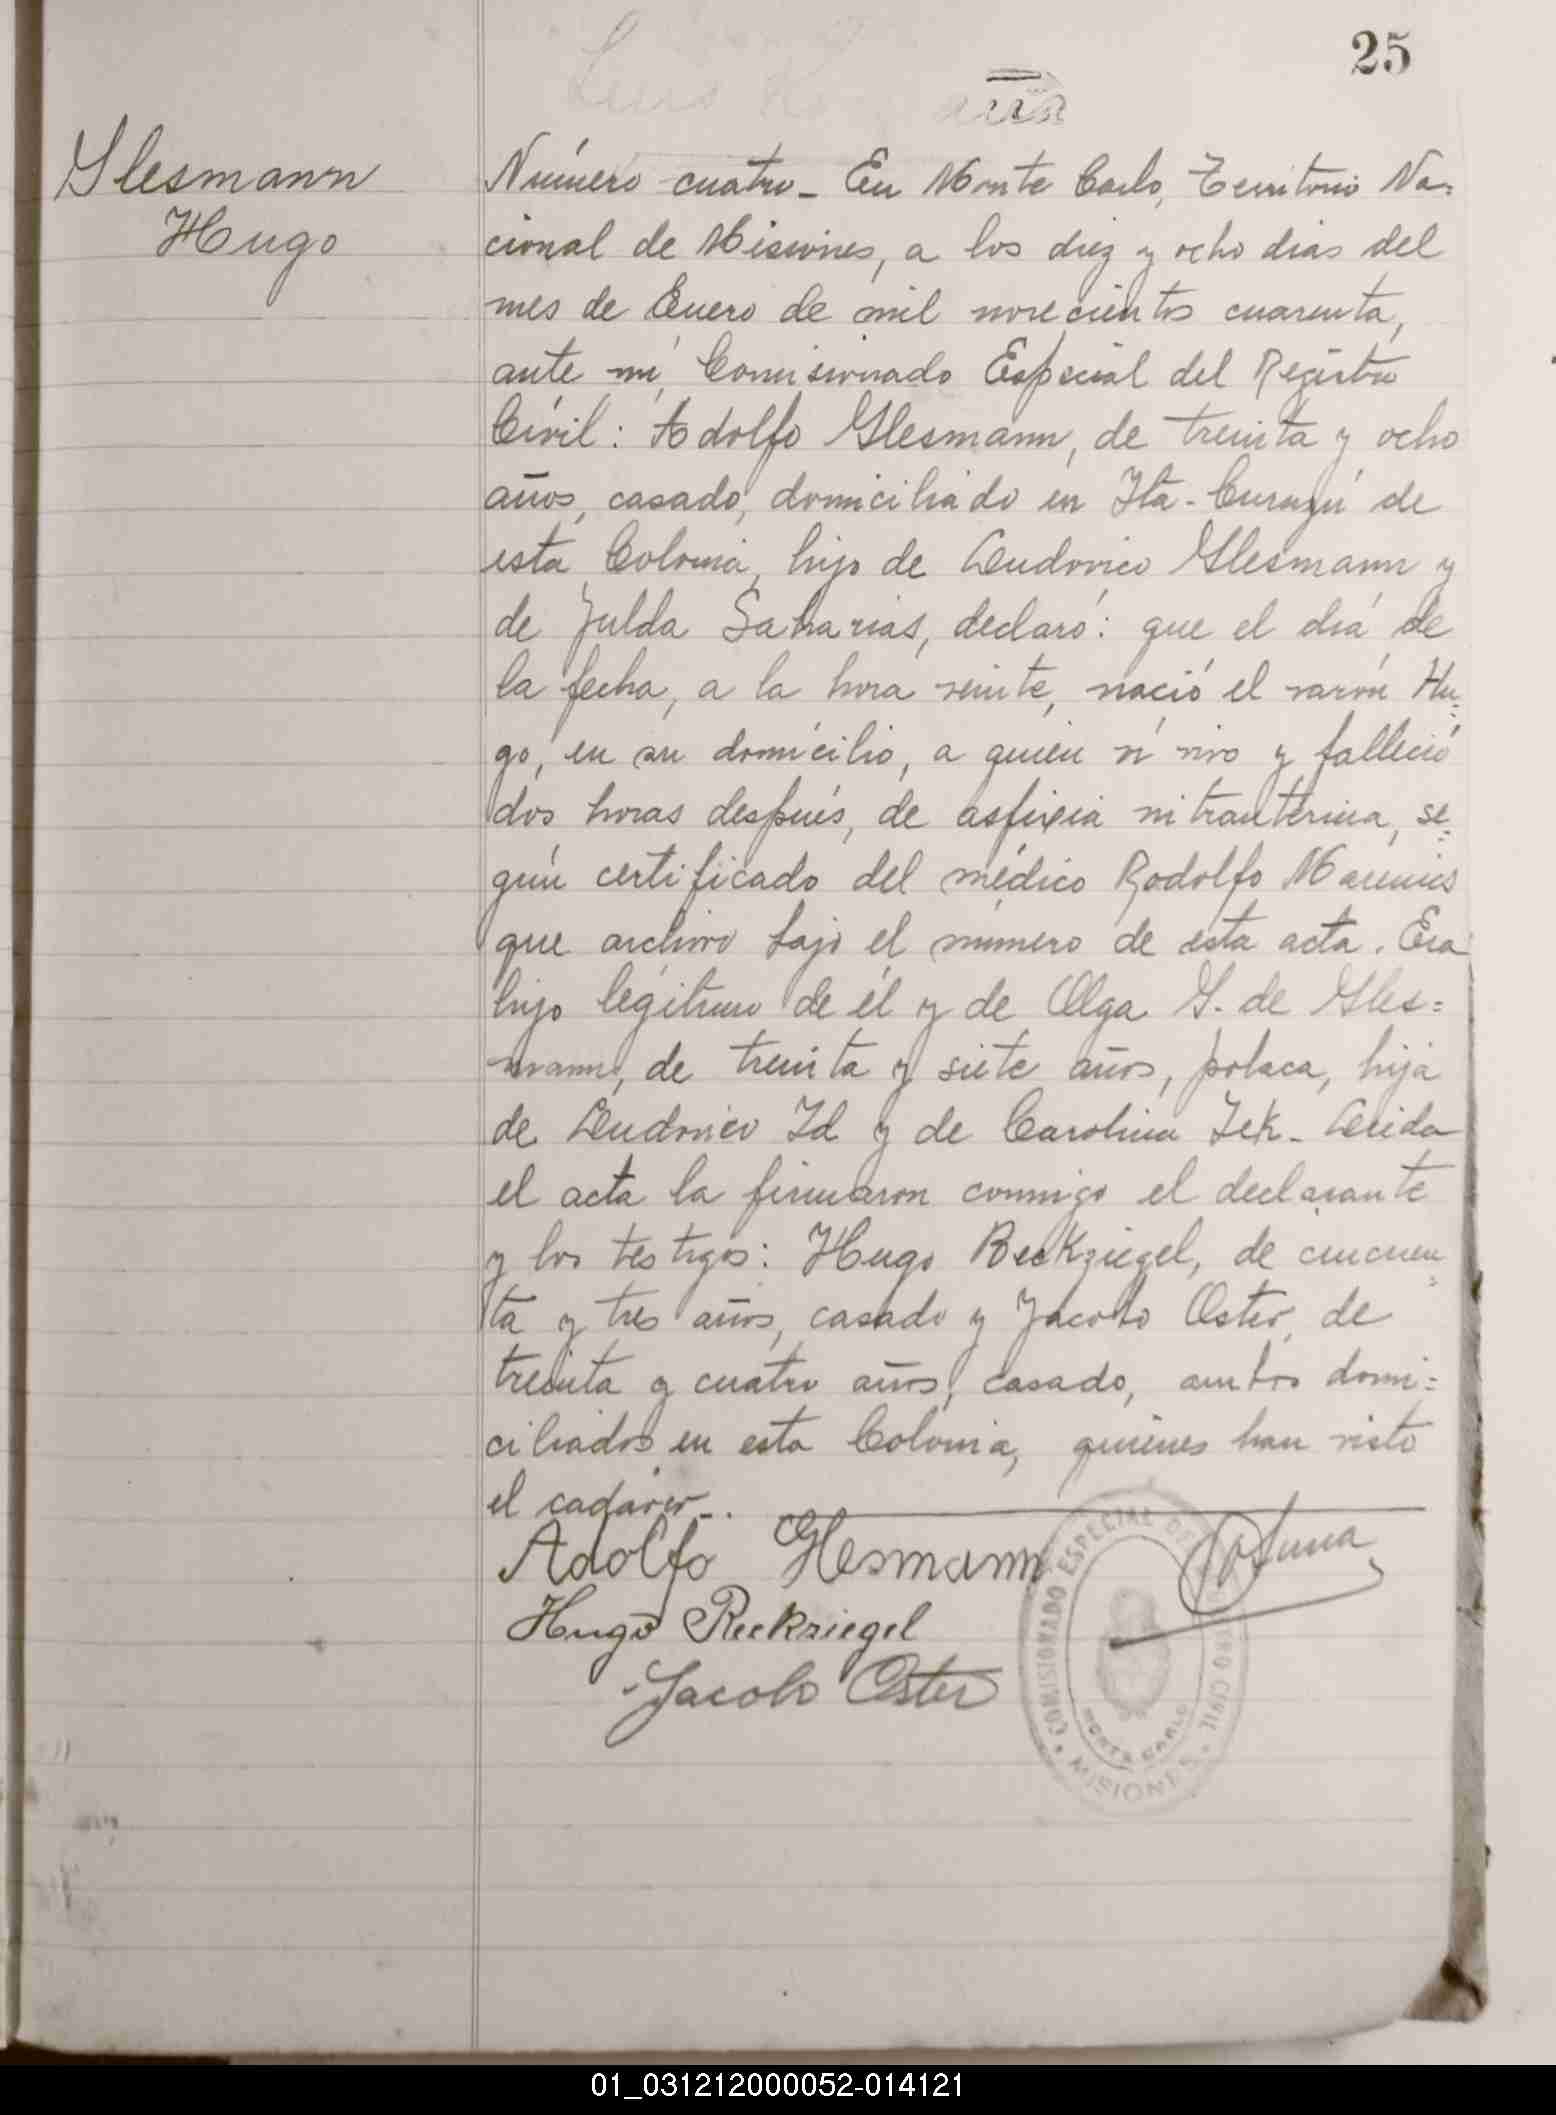 25
Glesmann
Hugo
Número cuatro - En Monte Carlo, Territorio Na=
cional de Misiones, a los diez y ocho dias del
mes de Enero de mil novecientos cuarenta,
ante mí, Comisionado Especial del Registro
Civil: Adolfo Glesmann, de treinta y ocho
años, casado, domiciliado en Itá-Curuzú de
esta Colonia, hijo de Ludovico Glesmann y
de Julda Saharias, declaró: que el día de
la fecha, a la hora veinte, nació el varón Hu=
go, en su domicilio, a quien ví vivo y falleció
dos horas después, de asfixia intrauterina, se=
gún certificado del médico Rodolfo
que archivo bajo el número de esta acta. Era
hijo legítimo de él y de Olga G. de Gles=
mann, de treinta y siete años, polaca, hija
de Ludovico Id y de Carolina Jek - Leida
el acta la firmaron conmigo el declarante
y los testigos: Hugo Reckziegel, de cincuen=
ta y tres años, casado y Jacobo Oster, de
treinta y cuatro años, casado, ambos domi=
ciliados en esta Colonia, quienes han visto
el cadáver -.
Adolfo Glesmann
Hugo Reckziegel
Jacobo Oster
COMISIONADO ESPECIAL DEL REGISTRO CIVIL
MONTE CARLO
MISIONES
01_031212000052-014121